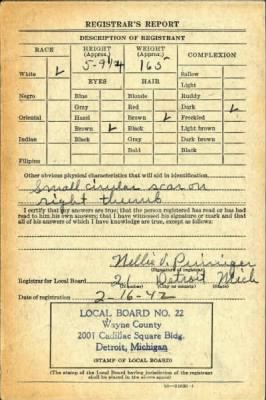 REGISTRAR'S REPORT
DESCRIPTION OF REGISTRANT
RACE HEIGHT (Approx.) WEIGHT (Approx.) COMPLEXION
White ✓ 5-9 1/4 165 Sallow
Light
EYES HAIR
Negro Blue Blonde Ruddy
Gray Red Dark ✓
Oriental Hazel Brown ✓ Freckled
Brown ✓ Black Light brown
Indian Black Gray Dark brown
Bald Black
Filipino
Other obvious physical characteristics that will aid in identification
Small circular scar on
right thumb
I certify that my answers are true; that the person registered has read or has had
read to him his own answers; that I have witnessed his signature or mark and that
all of his answers of which I have knowledge are true, except as follows:
Nellie
(Signature of registrar)
Registrar for Local Board 21 Detroit Mich
Date of registration 2-16-42
LOCAL BOARD NO. 22
Wayne County
2001 Cadillac Square Bldg.
Detroit, Michigan
(STAMP OF LOCAL BOARD)
(The stamp of the Local Board having jurisdiction of the registrant
shall be placed in the above space)